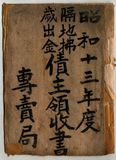 昭和十三年度
隔地掃債主領收書
歲出金
專賣局